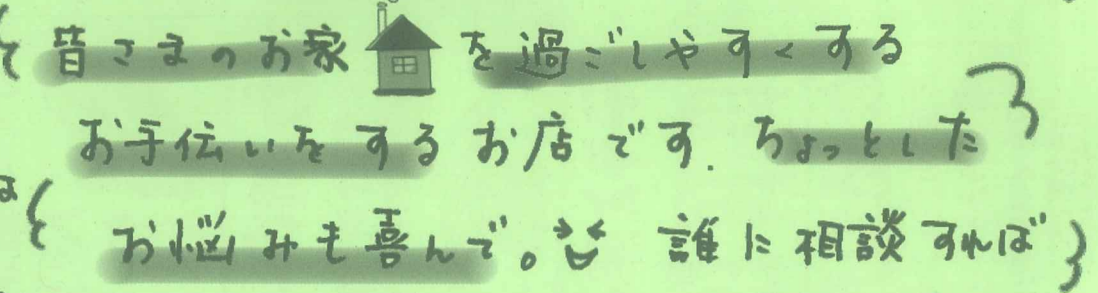 皆さまのお家を過ごしやすくする
お手伝いをするお店です. ちょっとした
お悩みも喜んで。 誰に相談すれば